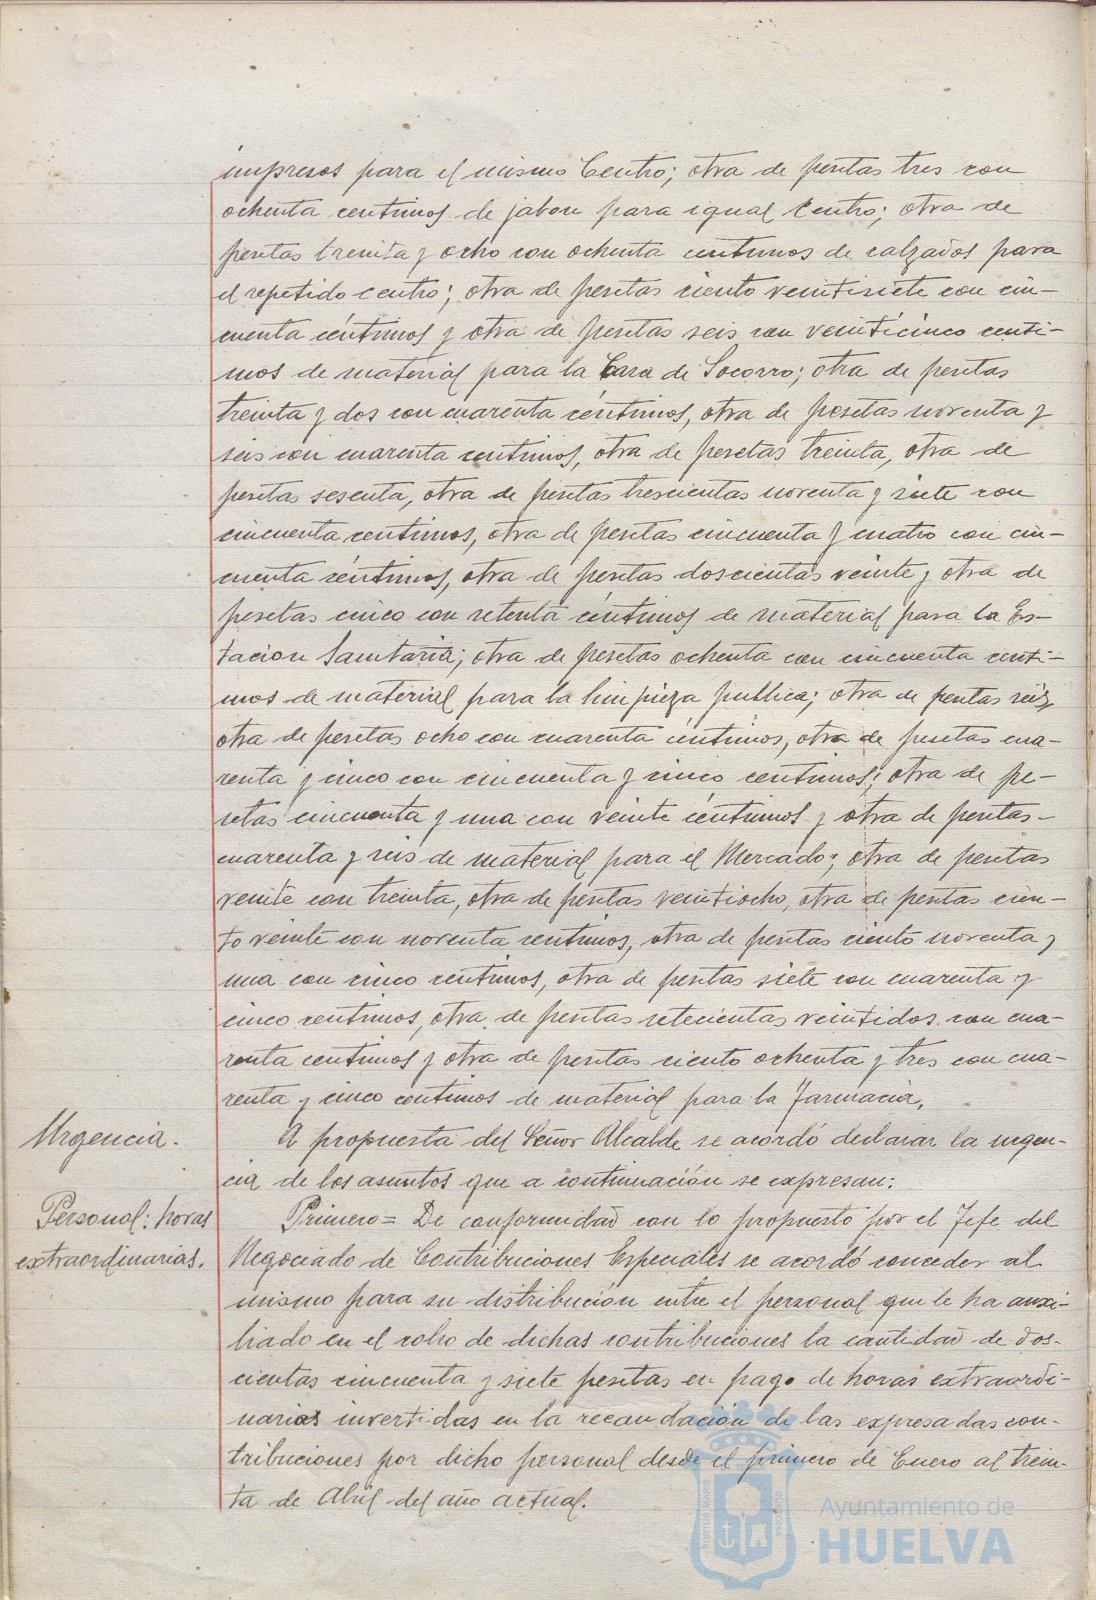 impresos para el mismo Centro; otra de pesetas tres con
ochenta centimos de jabon para igual Centro; otra de
pesetas treinta y ocho con ochenta centimos de calzados para
el repetido centro; otra de pesetas ciento veintisiete con cin-
cuenta céntimos y otra de pesetas seis con veinticinco centi-
mos de material para la Casa de Socorro; otra de pesetas
treinta y dos con cuarenta céntimos, otra de pesetas noventa y
seis con cuarenta centimos, otra de pesetas treinta, otra de
pesetas sesenta, otra de pesetas trescientas noventa y siete con
cincuenta centimos, otra de pesetas cincuenta y cuatro con cin-
cuenta céntimos, otra de pesetas doscientas veinte y otra de
pesetas cinco con setenta céntimos de material para la Es-
tacion Sanitaria; otra de pesetas ochenta con cincuenta centi-
mos de material para la limpieza publica; otra de pesetas seis,
otra de pesetas ocho con cuarenta céntimos, otra de pesetas cua-
renta y cinco con cincuenta y cinco centimos; otra de pe-
setas cincuenta y una con veinte céntimos y otra de pesetas-
cuarenta y seis de material para el Mercado; otra de pesetas
veinte con treinta, otra de pesetas veintiocho, otra de pesetas cien-
to veinte con noventa centimos, otra de pesetas ciento noventa y
una con cinco centimos, otra de pesetas siete con cuarenta y
cinco centimos, otra de pesetas setecientas veintidos con cua-
renta centimos y otra de pesetas ciento ochenta y tres con cua-
renta y cinco centimos de material para la Farmacia.
Urgencia.
A propuesta del Señor Alcalde se acordó declarar la urgen-
cia de los asuntos que a continuación se expresan:
Personal: horas
extraordinarias.
Primero= De conformidad con lo propuesto por el Jefe del
Negociado de Contribuciones Especiales se acordó conceder al
mismo para su distribución entre el personal que le ha auxi-
liado en el cobro de dichas contribuciones la cantidad de dos-
cientas cincuenta y siete pesetas en pago de horas extraordi-
narias invertidas en la recaudación de las expresadas con-
tribuciones por dicho personal desde el primero de Enero al trein-
ta de Abril del año actual.
Ayuntamiento de
HUELVA